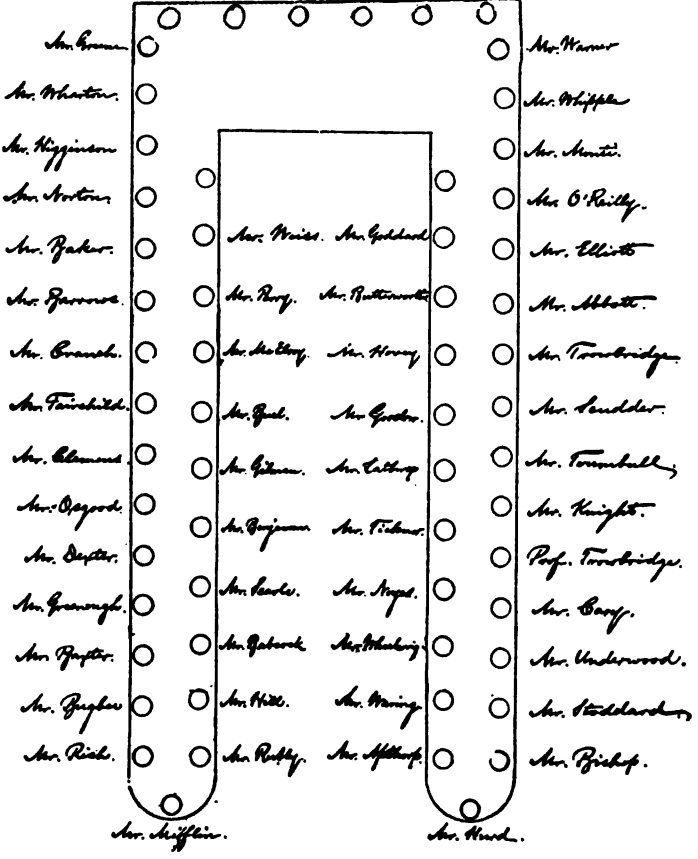 Mr. Greene
Mr. Wharton.
Mr. Higginson
Mr. Norton.
Mr. Baker.
Mr. Barrows.
Mr. Cranch.
Mr. Fairchild.
Mr. Clemens.
Mr. Osgood.
Mr. Dexter.
Mr. Greenough.
Mr. Baxter.
Mr. Bugbee
Mr. Rich.
Mr. Mifflin.
Mr. Weiss.
Mr. Perry.
Mr. McElroy.
Mr. Buel.
Mr. Gilman.
Mr. Benjamin
Mr. Searle.
Mr. Babcock
Mr. Hill.
Mr.
Mr. Goddard
Mr. Butterworth
Mr. Hovey
Mr. Gordon.
Mr. Lathrop
Mr. Ticknor.
Mr. Noyes.
Mr. Wheelwright
Mr. Waring
Mr. Apthorp.
Mr. Hurd.
Mr. Warner
Mr. Whipple
Mr. Monti.
Mr. O'Reilly.
Mr. Elliott
Mr. Abbott.
Mr. Trowbridge.
Mr. Scudder.
Mr. Trumbull,
Mr. Knight.
Prof. Trowbridge.
Mr. Cary.
Mr. Underwood.
Mr. Stoddard,
Mr. Bishop.